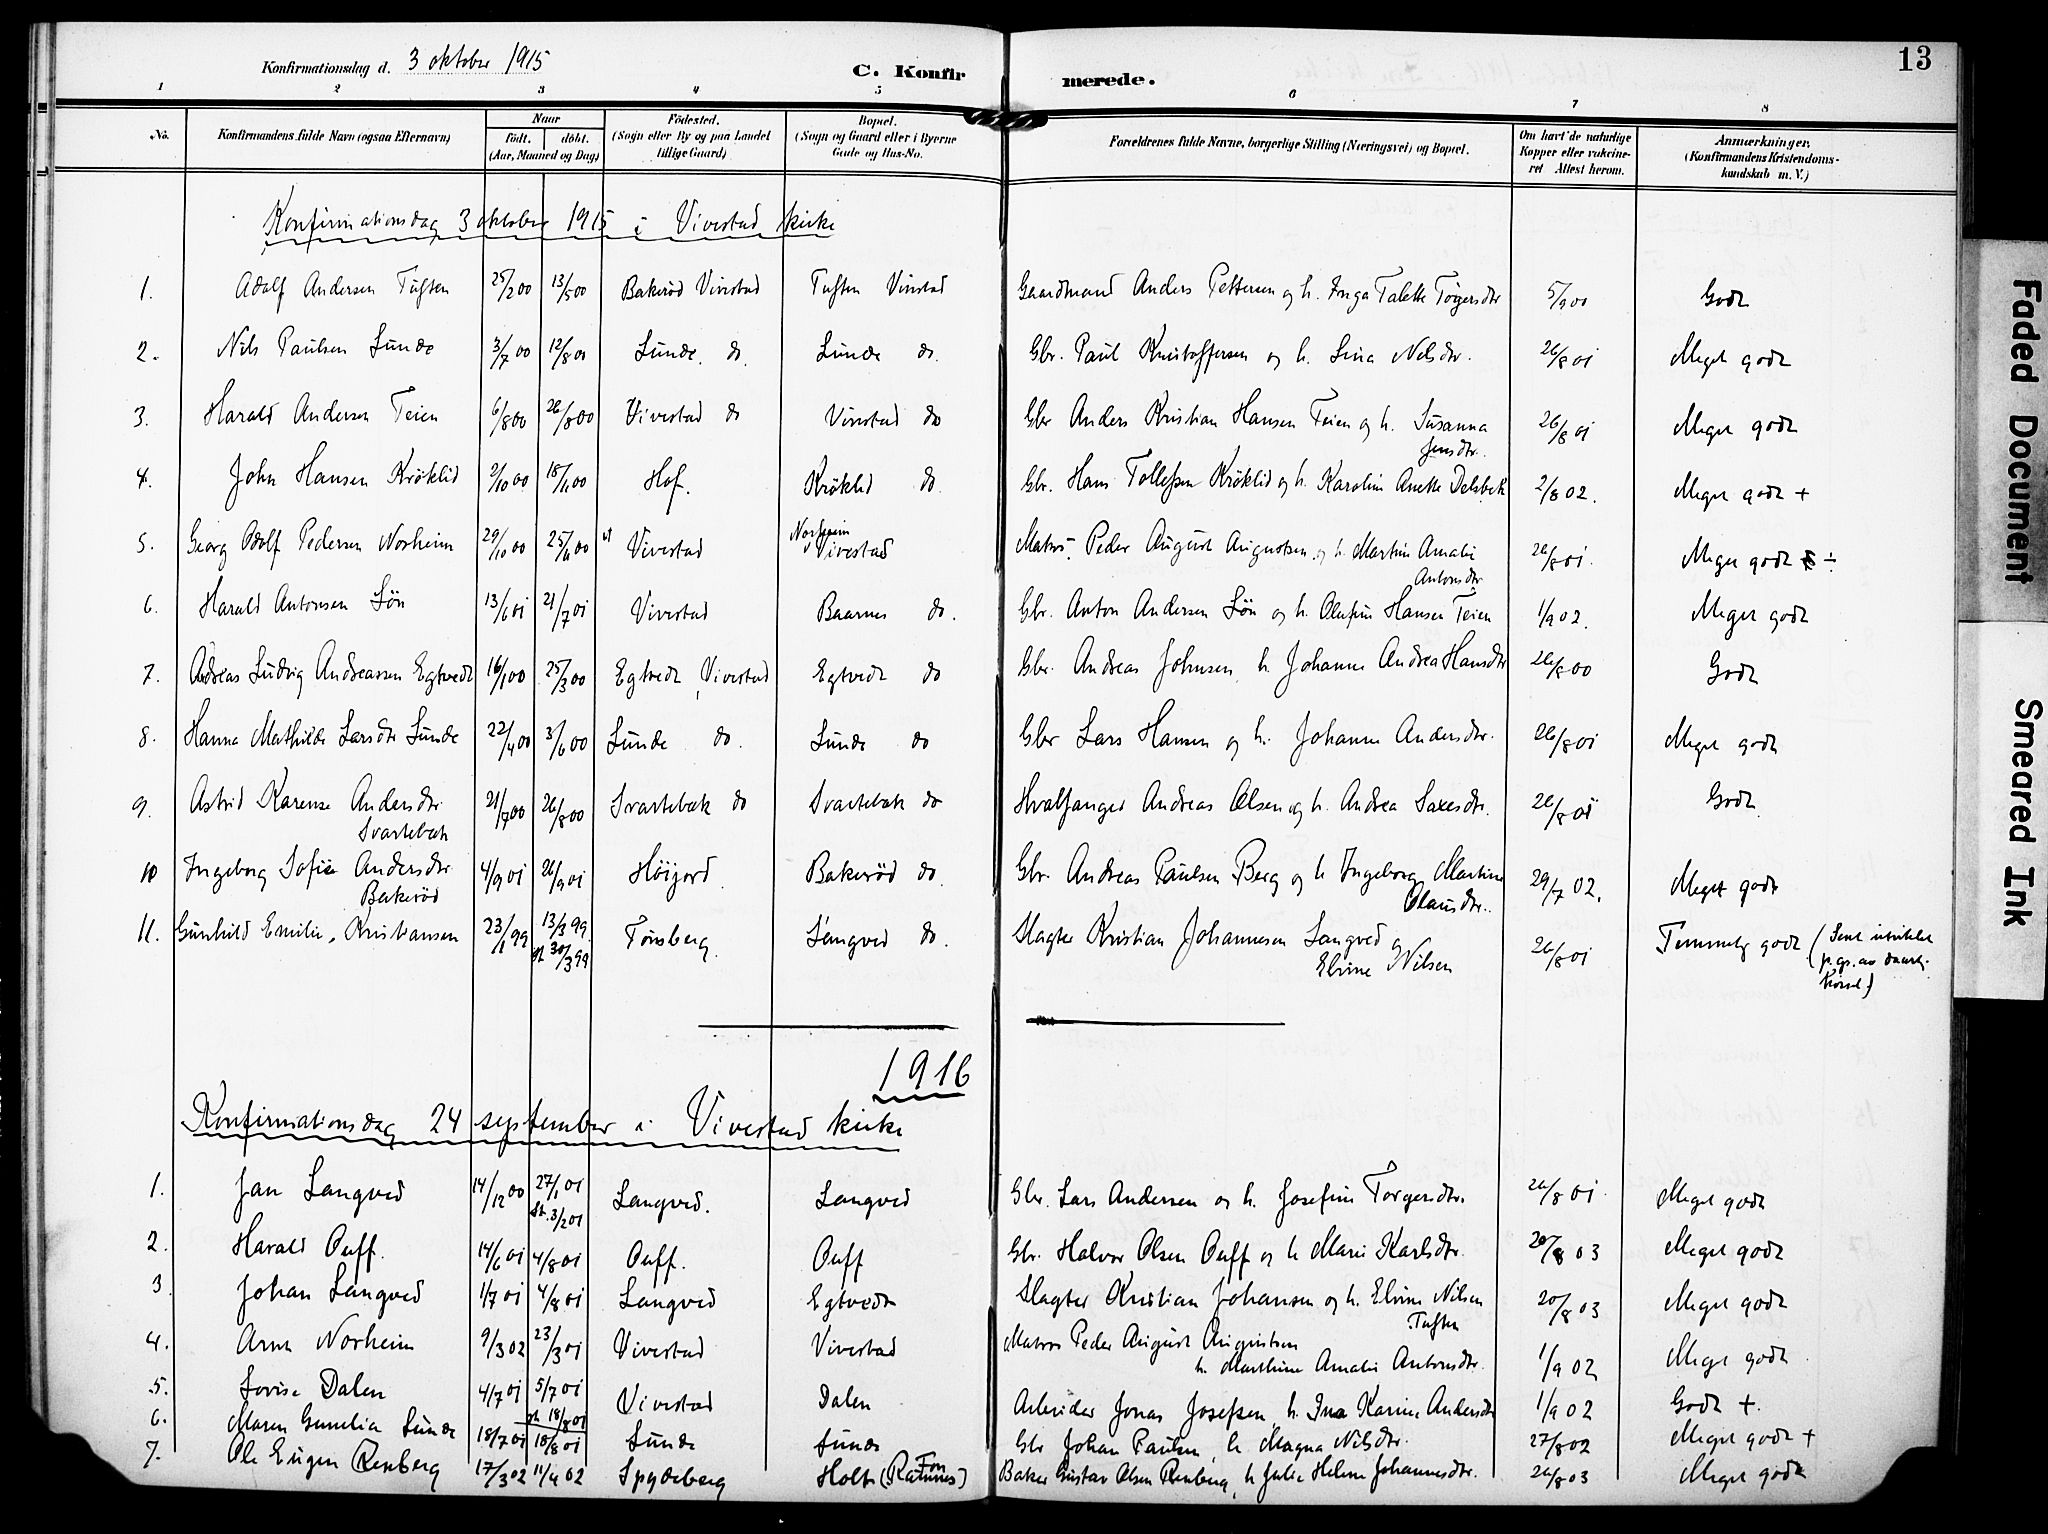 13
Konfirmationsdag d. 3 oktober 1915
C. Konfirmerede.
1 2 3 4 5 6 7 8
No. Konfirmandens fulde Navn (ogsaa Efternavn) Naar født. døbt. (Aar, Maaned og Dag) Fødested. (Sogn eller By og paa Landet tillige Gaard) Bopæl. (Sogn og Gaard eller i Byerne Gade og Hus-No. Forældrenes fulde Navne, borgerlige Stilling (Næringsvei) og Bopæl. Om havt de naturlige Kopper eller vakcineret Attest herom. Anmærkninger. (Konfirmandens Kristendomskundskab m. V.)
Konfirmationsdag 3 oktober 1915 i Vivestad kirke
1. Adolf Andersen Tuften 25/2 00 13/5 00 Bakerød Vivestad Tuften Vivestad Gaardmand Anders Pettersen og h. Inga Talette Torgersdtr 5/9 00 Godt
2. Nils Paulsen Sunde 3/7 00 12/8 00 Sunde do. Sunde do. Gbr. Paul Kristoffersen og h. Lina Nilsdtr. 26/8 01 Meget godt
3. Harald Andersen Teien 6/8 00 26/8 00 Vivestad do Vivestad do Gbr Anders Kristian Hansen Teien og h. Susanna Jensdtr. 26/8 01 Meget godt
4. John Hansen Krøklid 2/10 00 18/11 00 Hof. Krøklid do. Gbr. Hans Tollefsen Krøklid og h. Karoline Anette Delebek 2/8 02. Meget godt +
5. Georg Adolf Pedersen Norheim 29/10 00 25/11 00 Vivestad Norheim Vivestad Matros. Peder August Augustsen og h. Martine Amalie Antonsdtr 26/8 01. Meget godt ÷
6. Harald Antonsen Løn 13/6 01 21/7 01 Vivestad Baarnes do. Gbr. Anton Andersen Løn og h. Olufine Hansen Teien 1/9 02. Meget godt
7. Andreas Ludvig Andreassen Egtvedt 16/1 00 25/3 00 Egtvedt, Vivestad Egtvedt do Gbr. Andreas Johnsen, h. Johanne Andrea Hansdtr 26/8 00 Godt
8. Hanna Mathilde Larsdtr Sunde 22/4 00 3/6 00 Sunde do. Sunde do Gbr Lars Hansen og h. Johanne Andersdtr. 26/8 01 Meget godt
9. Astrid Karense Andersdtr Svartebæk 21/7 00 26/8 00 Svartebæk do Svartebæk do Hvalfanger Andreas Olsen og h. Andrea Saxesdtr. 26/8 01 Godt.
10 Ingeborg Sofie Andersdtr Bakerød 4/9 01 26/9 01 Høijord. Bakerød do. Gbr. Andreas Paulsen Berg og h Ingeborg Martine Olausdtr. 29/7 02. Meget godt
11. Gunhild Emilie Kristiansen 23/1 99 13/3 99. st 30/3 99 Tønsberg. Langved do. Slagter Kristian Johannesen Langved og Elvine Nilsen 26/8 01 Temmelig godt (Sent utviklet p. gr. av daarlig hørsel)
1916
Konfirmationsdag 24 september i Vivestad kirke
1. Jan Langved 14/12 00 27/1 01 St. 3/2 01 Langved. Langved Gbr. Lars Andersen og h. Josefine Torgersdtr. 26/8 01. Meget godt
2. Harald Ouff. 14/6 01 4/8 01 Ouff. Ouff Gbr. Halvor Olsen Ouff og h Marie Karlsdtr. 20/8 03 Meget godt
3 Johan Langved 1/7 01 4/8 01 Langved Egtvedt Slagter Kristian Johansen og h. Elvine Nilsen Tuften 20/8 03 Meget godt
4. Arne Norheim 9/3 02 23/3 01 Vivestad Vivestad Matros Peder August Augustsen h. Marthine Amalie Antonsdtr. 1/9 02 Meget godt.
5. Lovise Dalen 4/7 01 5/7 01 st 18/8 01 Vivestad Dalen Arbeider Jonas Josefsen, h. Ina Karine Andersdtr 1/9 02 Godt +.
6. Maren Gunelia Sunde 18/7 01 18/8 01 Sunde Sunde Gbr Johan Paulsen, h. Magna Nilsdtr. 27/8 02 Meget godt +
7. Ole Eugen Renberg 17/3 02 11/4 02 Spydeberg Holt (Ramnes) Fon Baker Gustav Olsen Renberg, h Julie Helene Johannesdtr. 26/8 03 Meget godt
Faded Document
Smeared Ink